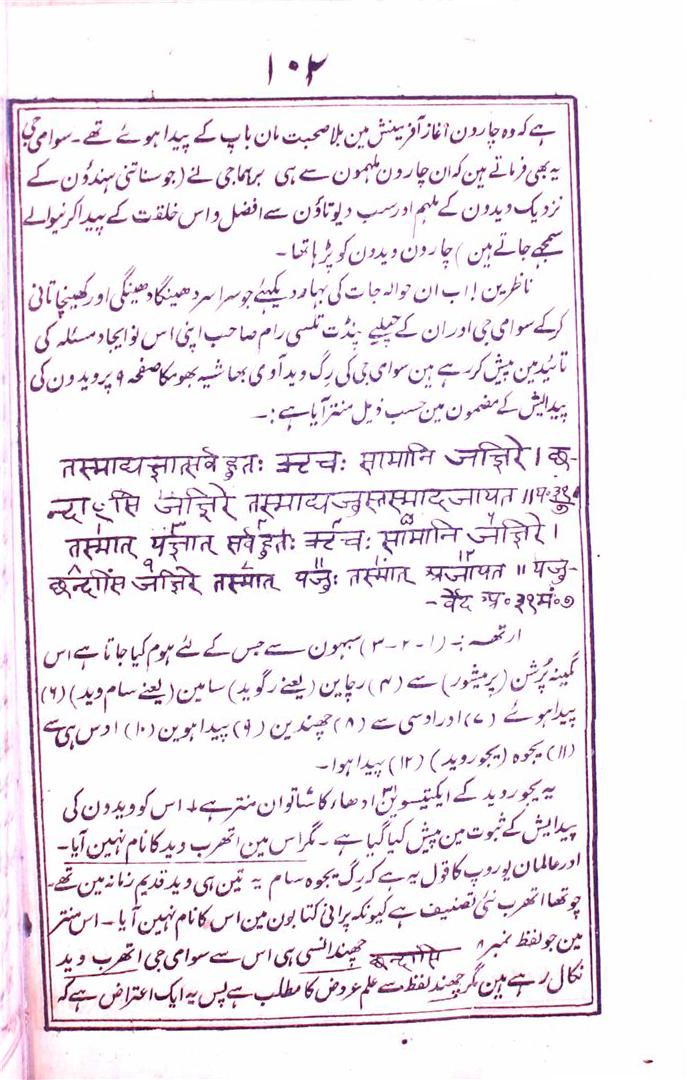 ۱۰۲
ہے کہ وہ چارون آغاز آفرینش مین بلا صحبت مان باپ کے پیدا ہوئے تھے۔ سوامی جی
یہ بھی فرماتے ہین کہ ان چارون ملہمون سے ہی برہما جی نے (جو سناتنی ہندؤن کے
نزدیک ویدون کے ملہم اور سب دیوتاؤن سے افضل و اس خلقت کے پیدا کرنیوالے
سمجھے جاتے ہین) چارون ویدون کو پڑہا تھا۔
ناظرین! اب ان حوالہ جات کی بہار دیکہئے جو سراسر دھینگا دھینگی اور کھینچا تانی
کرکے سوامی جی اور ان کے چیلے پنڈت تلسی رام صاحب اپنی اس نو ایجاد مسئلہ کی
تائید مین پیش کر رہے ہین سوامی جی کی رگ وید آدی بھاشیہ بھومکا صفحہ ۹ پر ویدون کی
پیدایش کے مضمون مین حسب ذیل منتر آیا ہے:۔
तस्माद्यज्ञात्सर्वहुतः ऋचः सामानि जज्ञिरे। छ-
न्दा्ꣳसि जज्ञिरे तस्माद्यजुस्तस्मादजायत ॥ य॰ ३१/७
तस्मात् यज्ञात् सर्वहुतः ऋचः सामानि जज्ञिरे।
छन्दांसि जज्ञिरे तस्मात् यजुः तस्मात् अजायत ॥ यजु-
-र्वेद अ॰ ३१ मं॰ ७
ارتھہ :۔ (۱-۲-۳) سبہون سے جس کے لئے ہوم کیا جاتا ہے اس
یگینہ پُرشن (پرمیشور) سے (۴) رچاین (یعنے رگوید) سامین (یعنے سام وید) (۶)
پیدا ہوئے (۷) اور اوسی سے (۸) چھندین (۹) پیدا ہوین (۱۰) اوس ہی سے
(۱۱) یجوہ (یجور وید) (۱۲) پیدا ہوا۔
یہ یجور وید کے ایکتیسوین ۳۱ ادھاء کا شاتوان منتر ہے اس کو ویدون کی
پیدایش کے ثبوت مین پیش کیا گیا ہے۔ مگر اس مین اتھرب وید کا نام نہین آیا۔
اور عالمان یوروپ کا قول یہ ہے کہ رگ یجوہ سام یہ تین ہی وید قدیم زمانہ مین تھے۔
چوتھا اتھرب نئی تصنیف ہے کیونکہ پرانی کتابون مین اس کا نام نہین آیا۔ اس منتر
مین جو لفظ نمبر ۸ छन्दांसि چھندانسی ہی اس سے سوامی جی اتھرب وید
نکال رہے ہین مگر چھند لفظ سے علم عروض کا مطلب ہے پس یہ ایک اعتراض ہے کہ